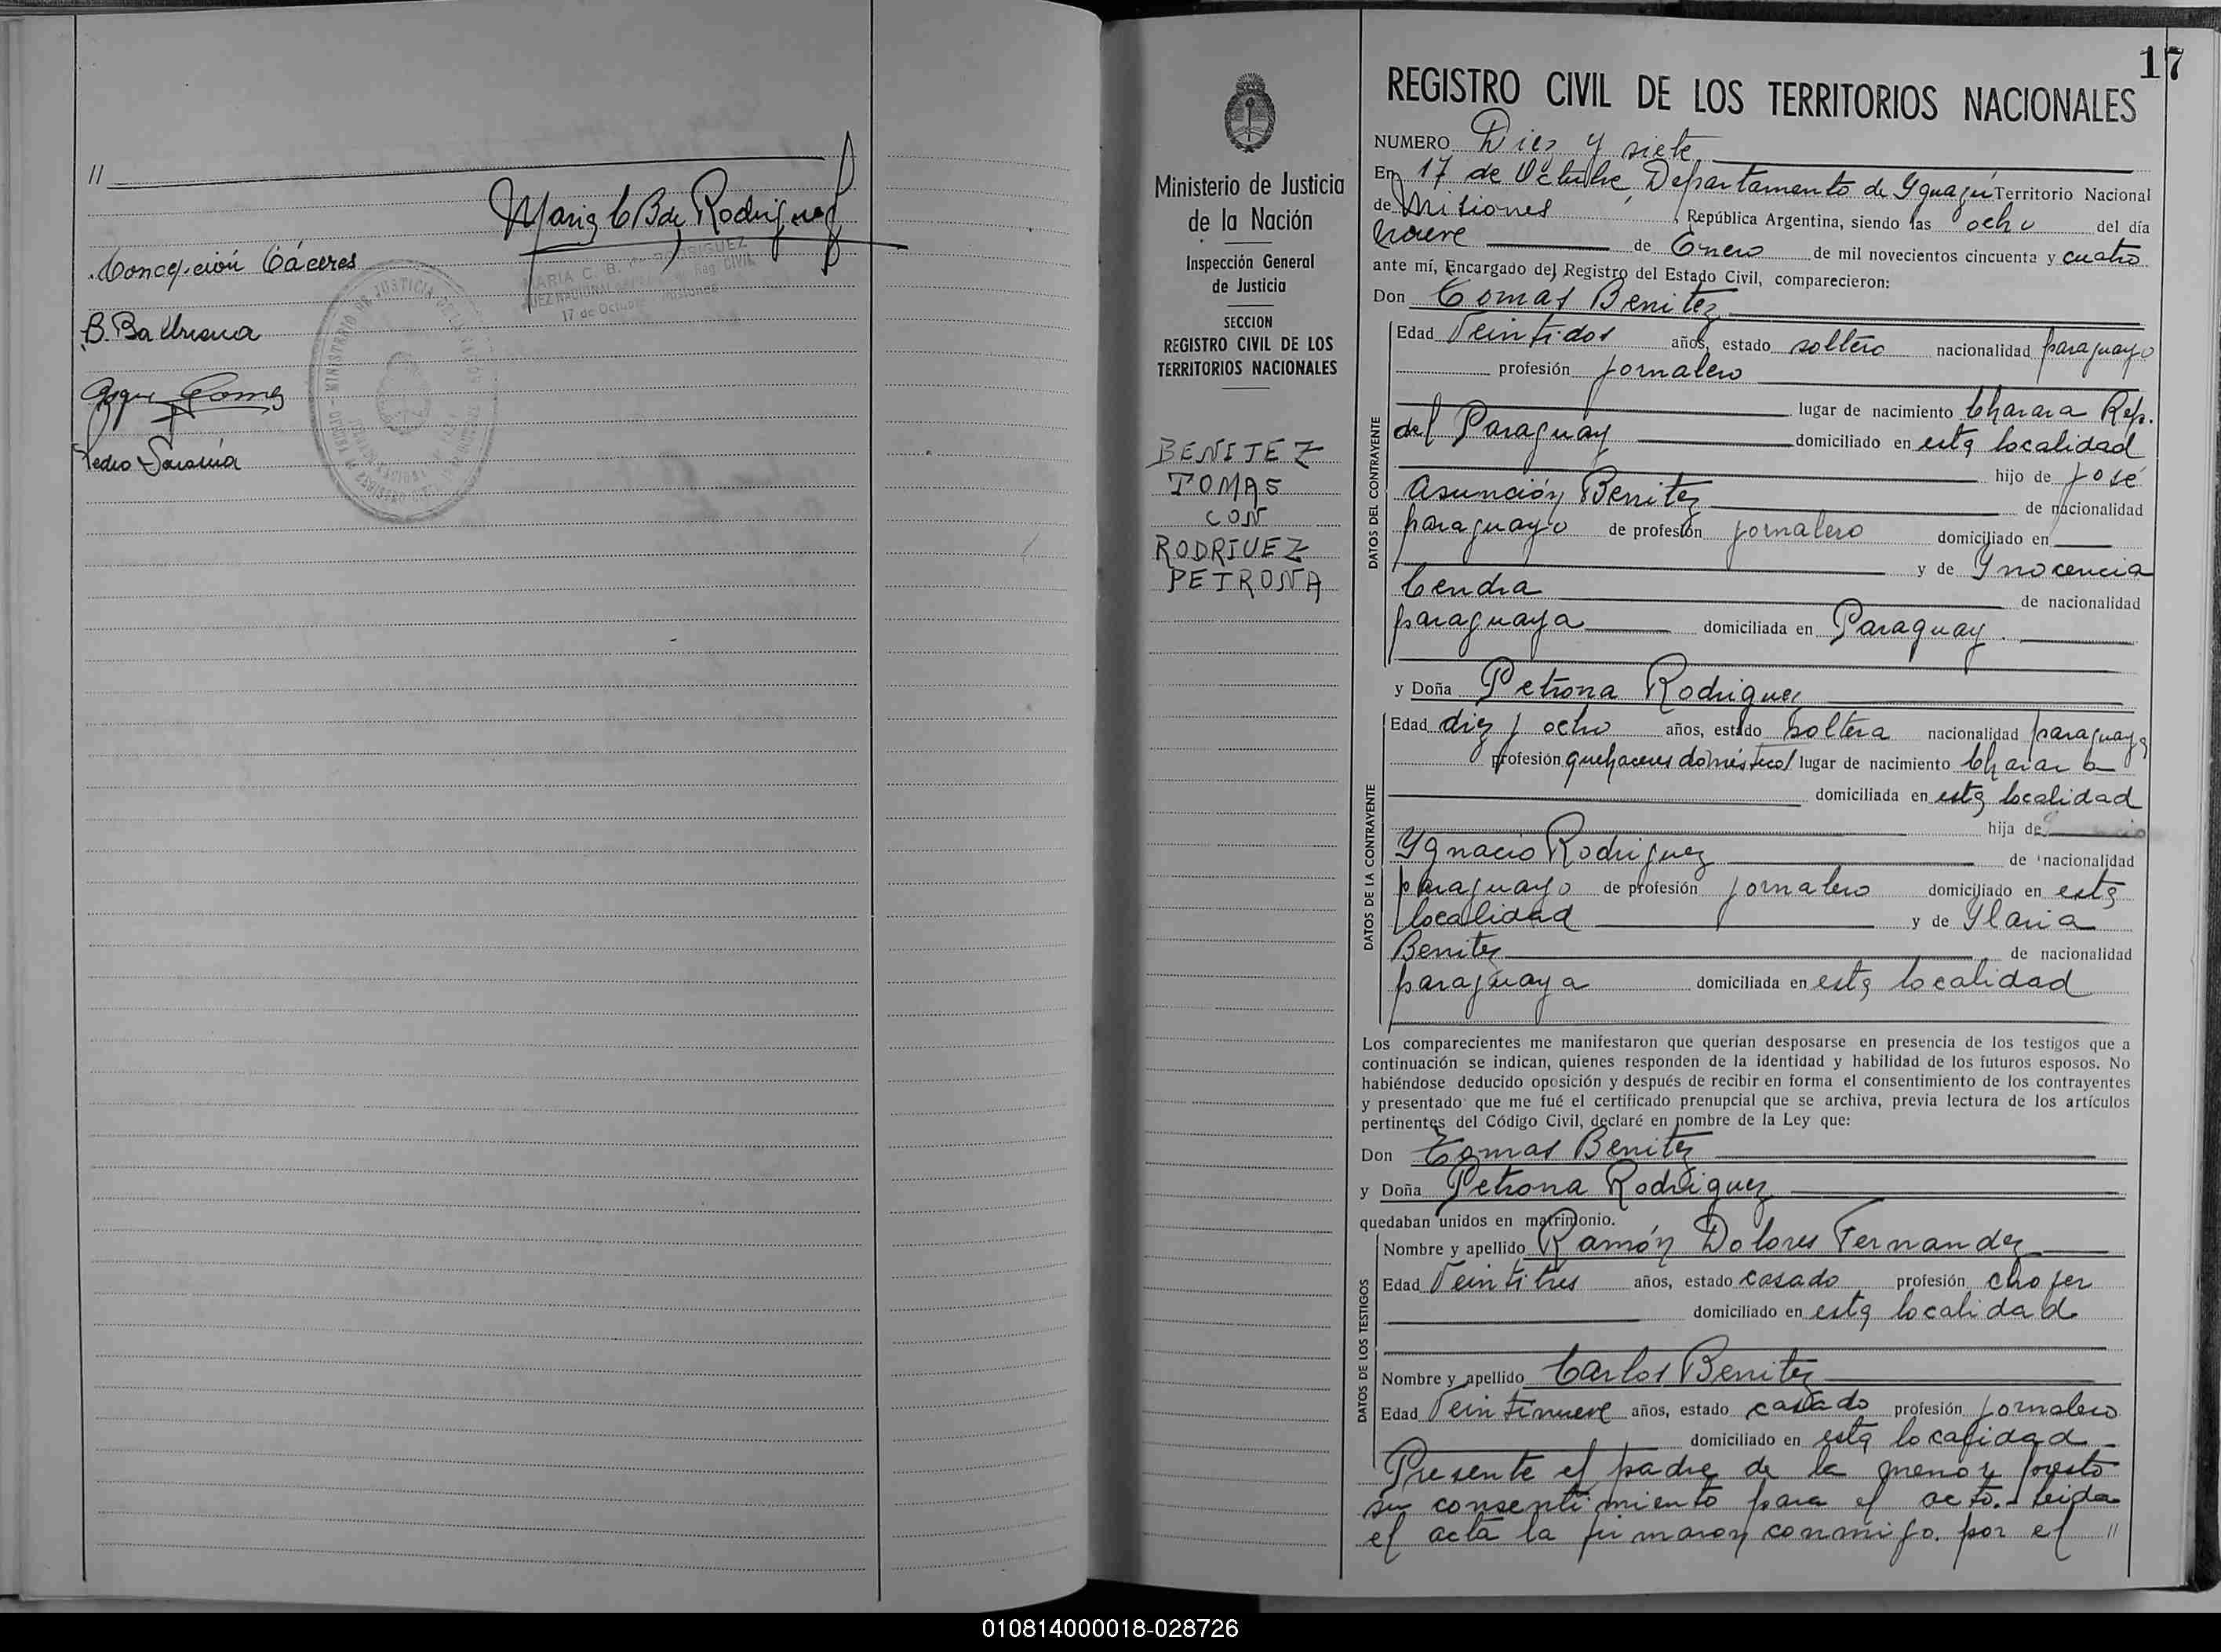 //
Maria C B de Rodriguez
Concepción Cáceres
MARIA C. B. DE RODRIGUEZ
JUEZ NACIONAL Reg. CIVIL
17 de Octubre - Misiones
MINISTERIO DE JUSTICIA DE LA NACIÓN
Gomez
Pedro
17
REGISTRO CIVIL DE LOS TERRITORIOS NACIONALES
Ministerio de Justicia
de la Nación
Inspección General
de Justicia
SECCION
REGISTRO CIVIL DE LOS
TERRITORIOS NACIONALES
BENITEZ
TOMAS
CON
RODRIUEZ
PETRONA
NUMERO Diez y siete
En 17 de Octubre, Departamento de Yguazú Territorio Nacional
de Misiones, República Argentina, siendo las ocho del día
nueve de Enero de mil novecientos cincuenta y cuatro
ante mí, Encargado del Registro del Estado Civil, comparecieron:
Don Tomas Benitez
DATOS DEL CONTRAYENTE
Edad Veintidos años, estado soltero nacionalidad paraguayo
profesión jornalero
lugar de nacimiento Charara Rep.
del Paraguay domiciliado en esta localidad
hijo de José
Asunción Benitez de nacionalidad
paraguayo de profesión jornalero domiciliado en
y de Ynocencia
Cendra de nacionalidad
paraguaya domiciliada en Paraguay.
y Doña Petrona Rodriguez
DATOS DE LA CONTRAYENTE
Edad diez y ocho años, estado soltera nacionalidad paraguaya
profesión quehaceres domésticos lugar de nacimiento Charara
domiciliada en esta localidad
hija de
Ygnacio Rodriguez de nacionalidad
paraguayo de profesión jornalero domiciliado en esta
localidad y de Ylaria
Benitez de nacionalidad
paraguaya domiciliada en esta localidad
Los comparecientes me manifestaron que querían desposarse en presencia de los testigos que a
continuación se indican, quienes responden de la identidad y habilidad de los futuros esposos. No
habiéndose deducido oposición y después de recibir en forma el consentimiento de los contrayentes
y presentado que me fué el certificado prenupcial que se archiva, previa lectura de los artículos
pertinentes del Código Civil, declaré en nombre de la Ley que:
Don Tomas Benitez
y Doña Petrona Rodriguez
quedaban unidos en matrimonio.
DATOS DE LOS TESTIGOS
Nombre y apellido Ramón Dolores Fernandez
Edad Veintitres años, estado casado profesión chofer
domiciliado en esta localidad
Nombre y apellido Carlos Benitez
Edad Veintinueve años, estado casado profesión jornalero
domiciliado en esta localidad
Presente el padre de la menor presto
su consentimiento para el acto. Leida
el acta la firmaron conmigo. por el //
010814000018-028726